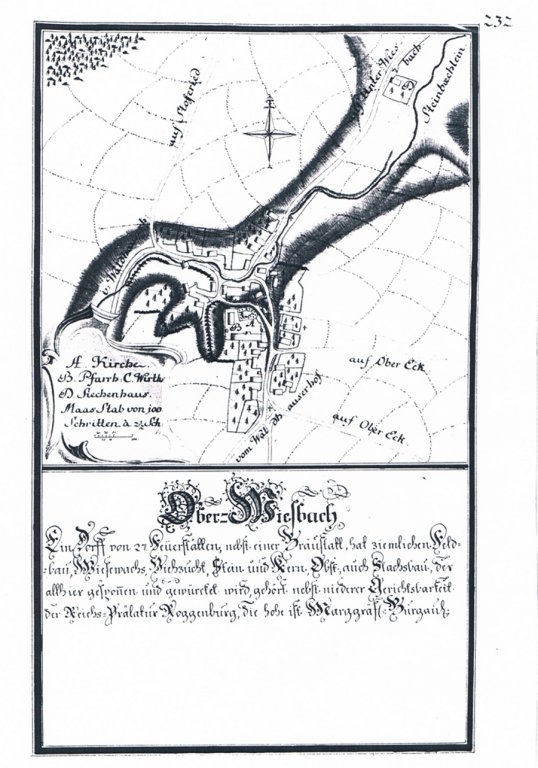 232
auf Stoferied
Unter Wies
bach
Steinbæchlein
A Kirche.
B. Pfarrh. C. Wirth
D Siechenhaus.
Maas Stab von 100
Schritten à 2½ Sch.
auf Ober Eck
auf Ober Eck
vom Wald
Ober=Wiesbach
Ein Dorff von 27 Feuerstätten, nebst einer Bräustatt, hat ziemlichen Feld-
bau, Wiesewachs, Viehzucht, Stein und Kern Obst, auch Flachsbau, der
allhier gesponen und gewürcket wird, gehört nebst niederer Gerichtsbarkeit
der Reichs=Prälatur Roggenburg, die hohe ist Marggräfl: Burgauisch: